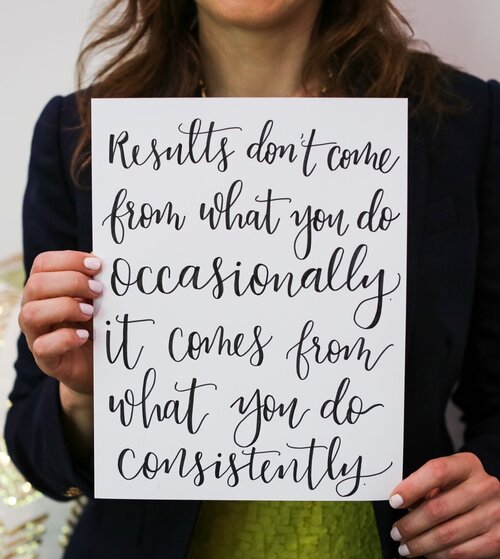 Results don't come
from what you do
occasionally.
it comes from
what you do
consistently.